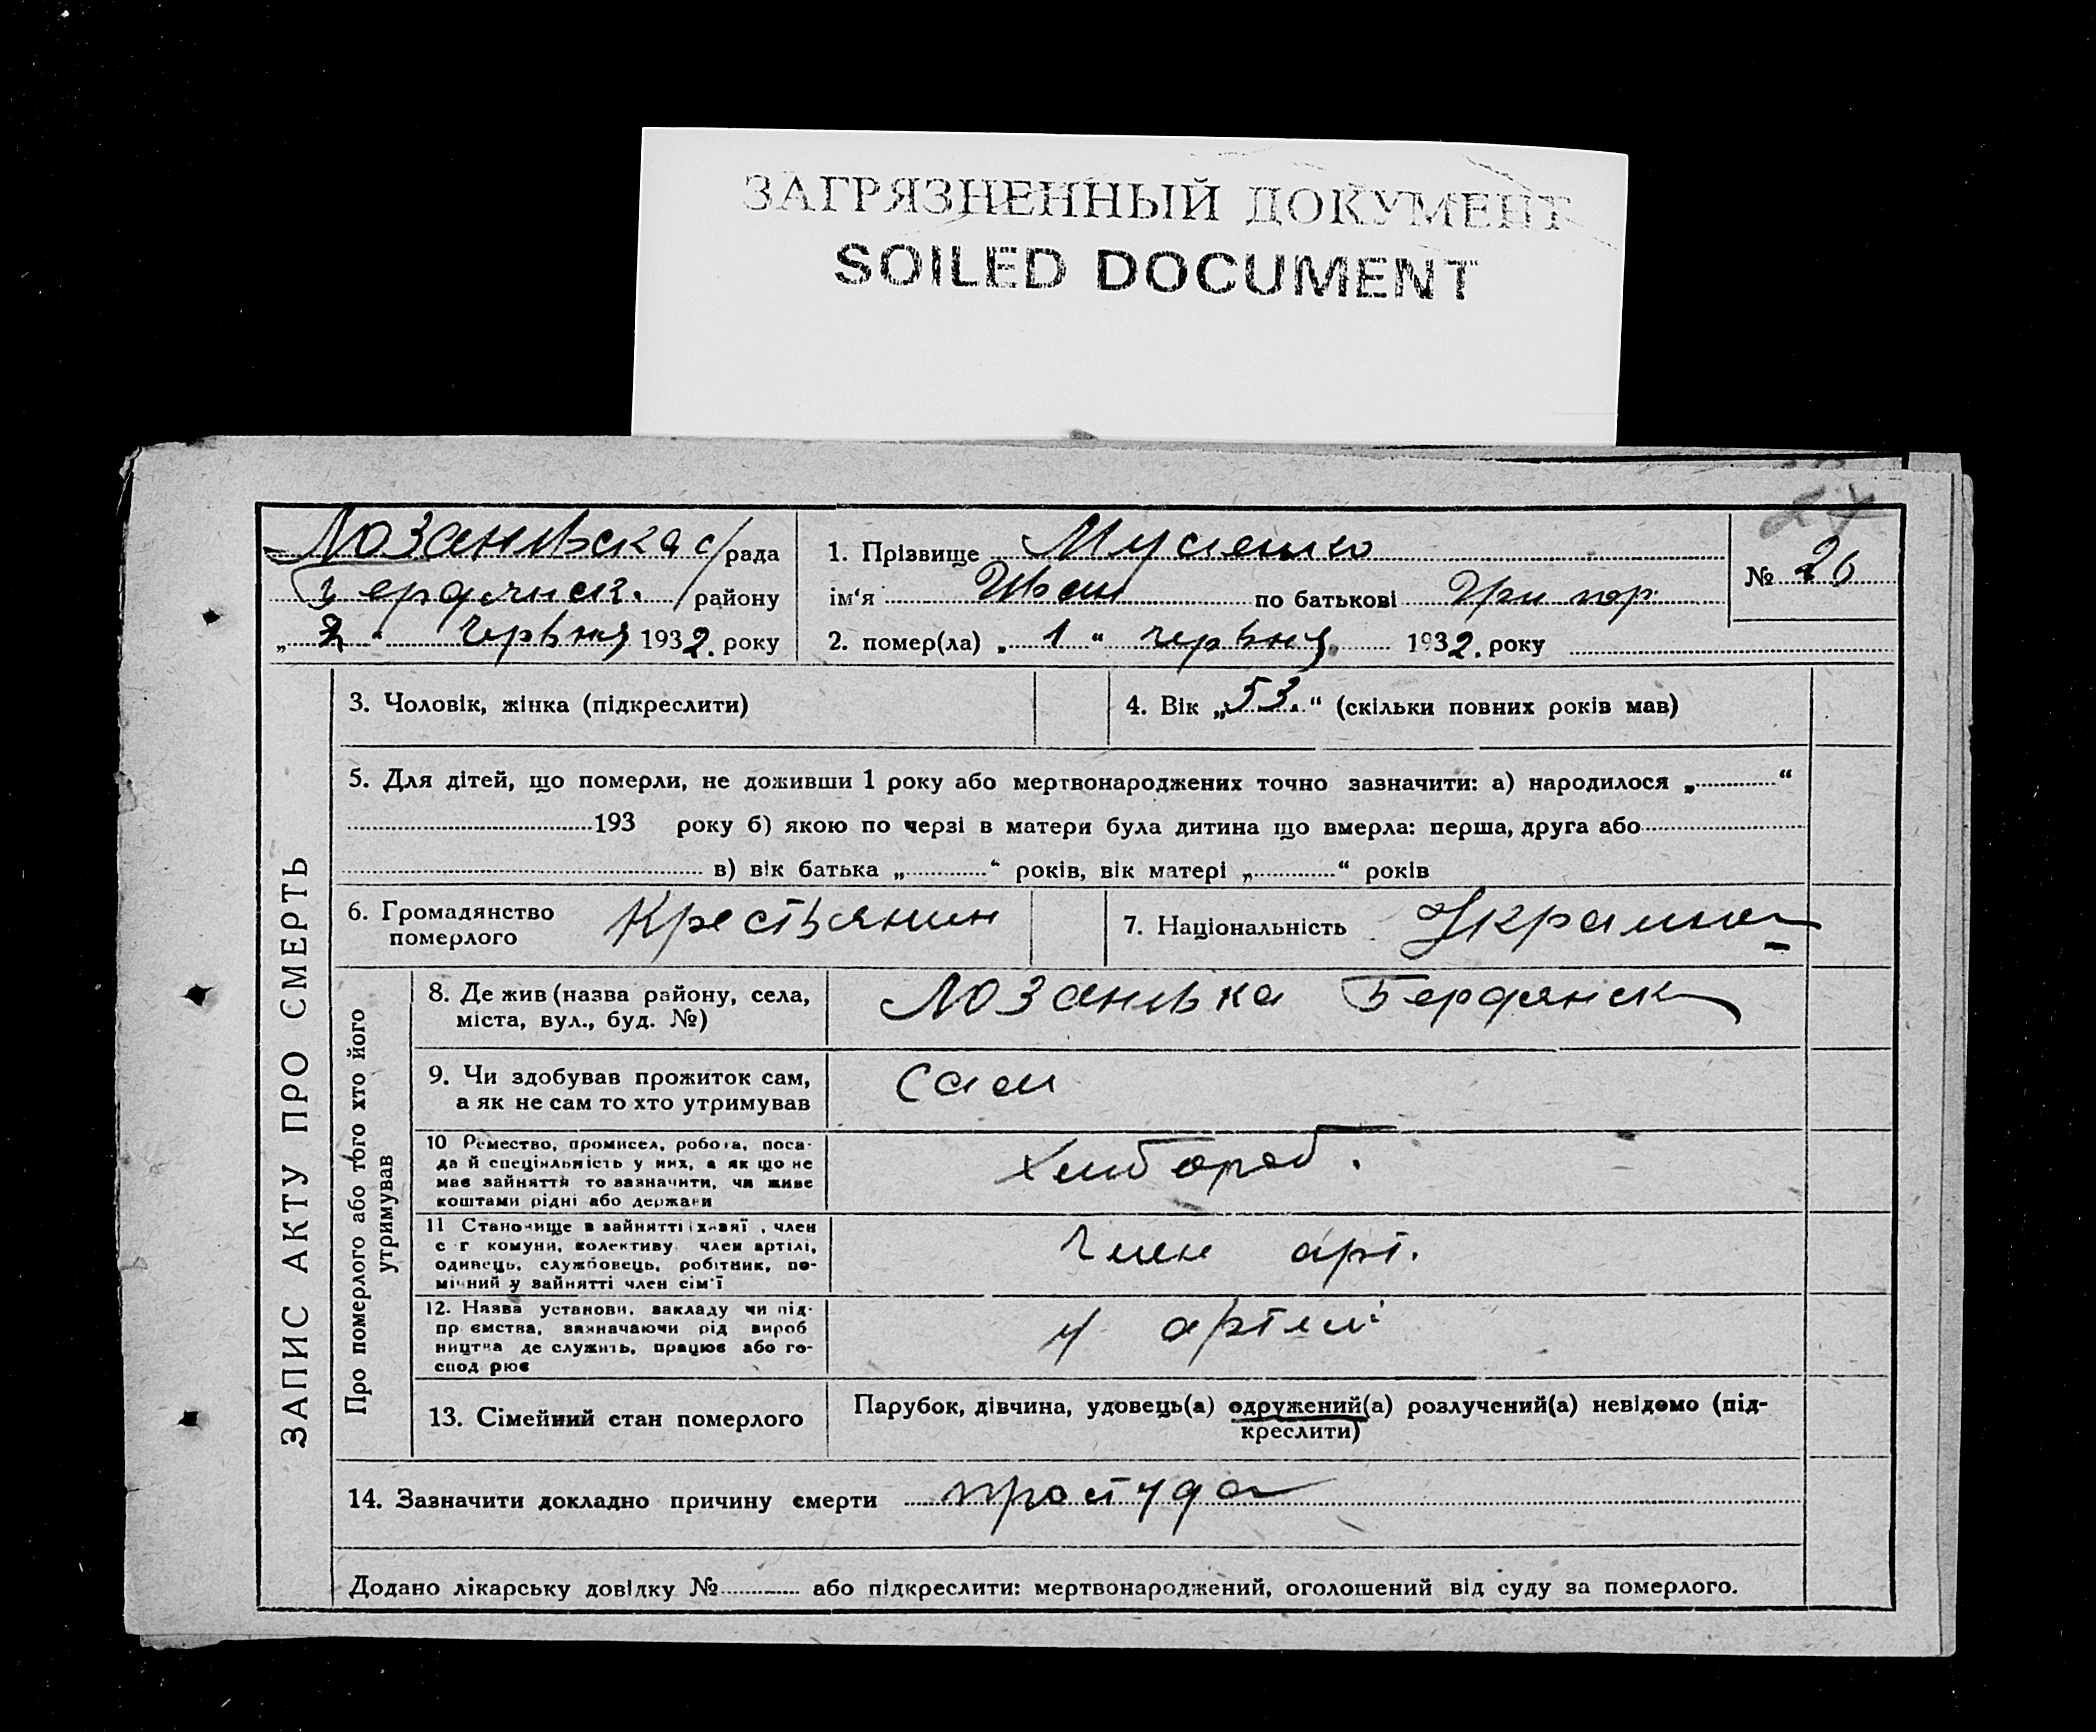 ЗАГРЯЗНЕННЫЙ ДОКУМЕНТ
SOILED DOCUMENT
27
Лозанівска с/рада
Бердянск. району
„2" червня 1932. року
1. Прізвище Мусиенко
№ 26
ім'я Иван по батькові Григор.
2. помер(ла) „1" червня 1932. року
ЗАПИС АКТУ ПРО СМЕРТЬ
3. Чоловік, жінка (підкреслити)
4. Вік „53." (скільки повних років мав)
5. Для дітей, що померли, не доживши 1 року або мертвонароджених точно зазначити: а) народилося „ "
193 року б) якою по черзі в матери була дитина що вмерла: перша, друга або
в) вік батька „ " років, вік матері „ " років
6. Громадянство
померлого
Крестьянин
7. Національність
Про померлого або того хто його
утримував
8. Де жив (назва району, села,
міста, вул., буд. №)
Лозанівка Бердянск
9. Чи здобував прожиток сам,
а як не сам то хто утримував
сам
10 Ремество, промисел, робота, поса-
да й спеціяльність у них, а як що не
має зайняття то зазначити, чи живе
коштами рідні або держави
хлібороб.
11 Становище в зайнятті: хазяї, член
с г комуни, колективу, член артілі,
одинець, службовець, робітник, по-
мічний у зайнятті член сім'ї
член арт.
12. Назва установи, закладу чи під-
пр ємства, зазначаючи рід вироб
ництва де служить, працює або го-
спод рює
у артілі
13. Сімейний стан померлого
Парубок, дівчина, удовець(а) одружений(а) розлучений(а) невідомо (під-
креслити)
14. Зазначити докладно причину смерти простуда
Додано лікарську довідку № або підкреслити: мертвонароджений, оголошений від суду за померлого.